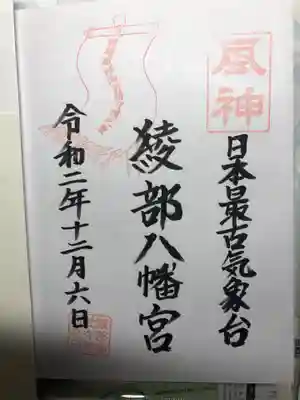 風神
日本最古気象台
綾部八幡宮
令和二年十二月六日